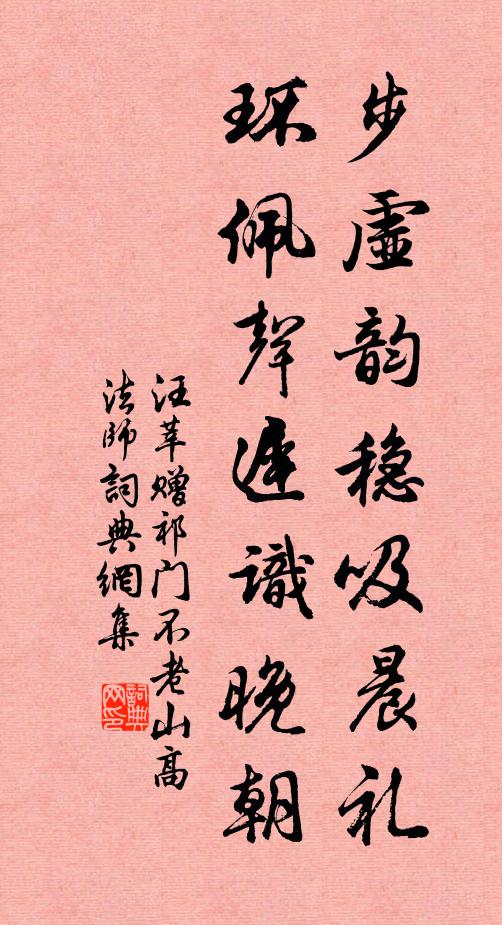 步虚韵稳吸晨礼
环佩声迟識晚朝
汪莘赠祁门不老山高
法師詞典網集
詞典网印